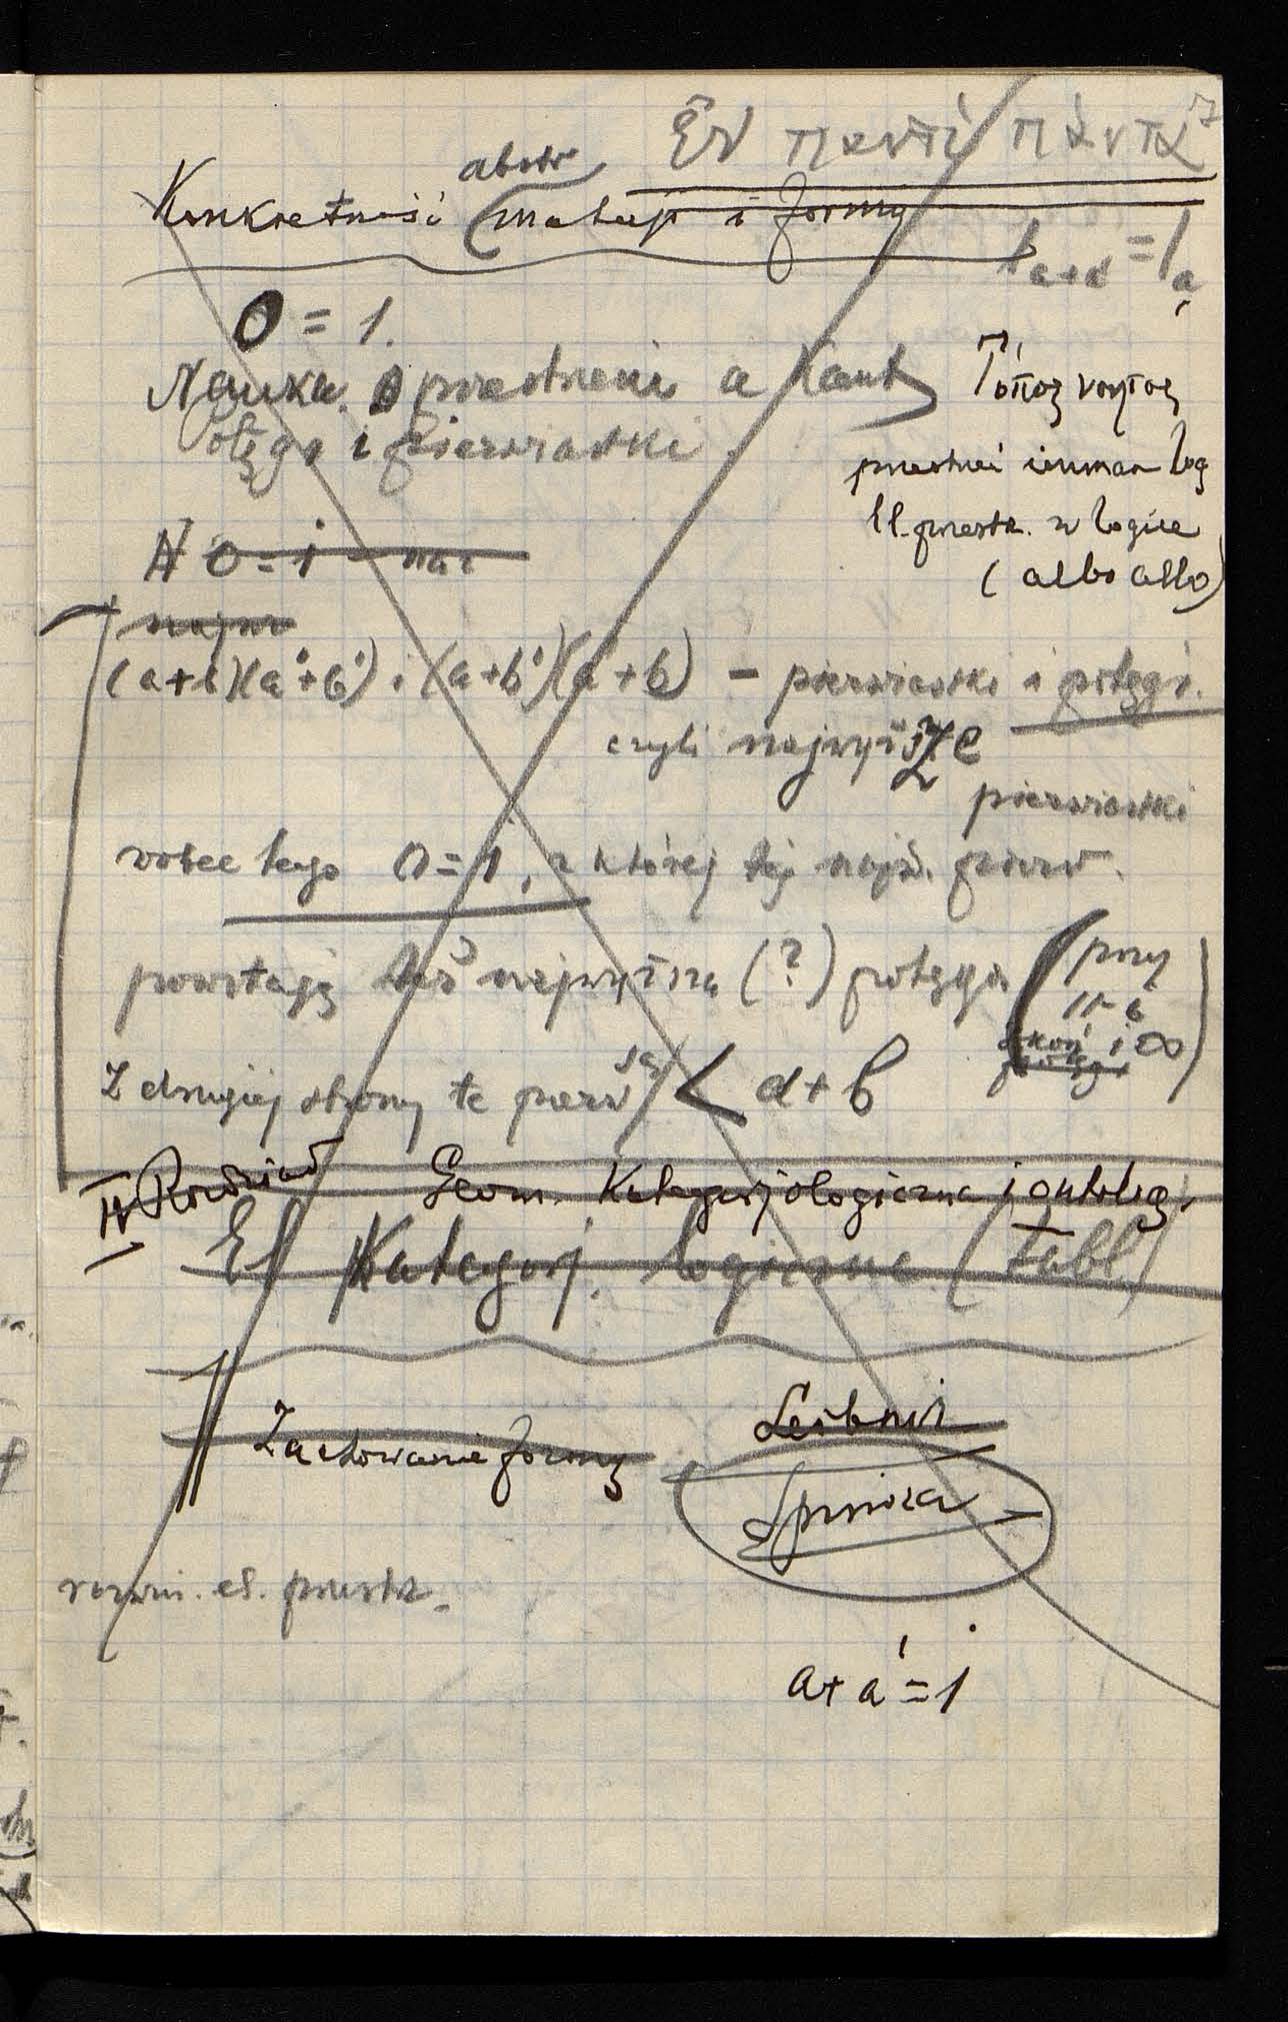 Ἐν παντί πάντα
abstr
Konkretność (materji i formy
= 1a
0 = 1.
Nauka o przestrzeni a Kant
Potęga i pierwiastki
Τόπος νοητος
przestrzeń log
przestrz. w logice
(albo albo)
N 0 = 1
(a+b)(a'+b') i (a+b')(a'+b) – pierwiastki i potęgi.
czyli najwyższe
pierwiastki
wobec tego 0=1, z której
powstają też najwyższa (?) potęga (przy
i ∞)
Z drugiej strony te pierw są < a+b
II Rozdział Geom. Kategorjologiczna i ontolog.
El Kategorj. logiczne (tabl.)
Zachowanie formy
Leibniz
Spinoza
rozwin. el. przestrz.
a+a'=1